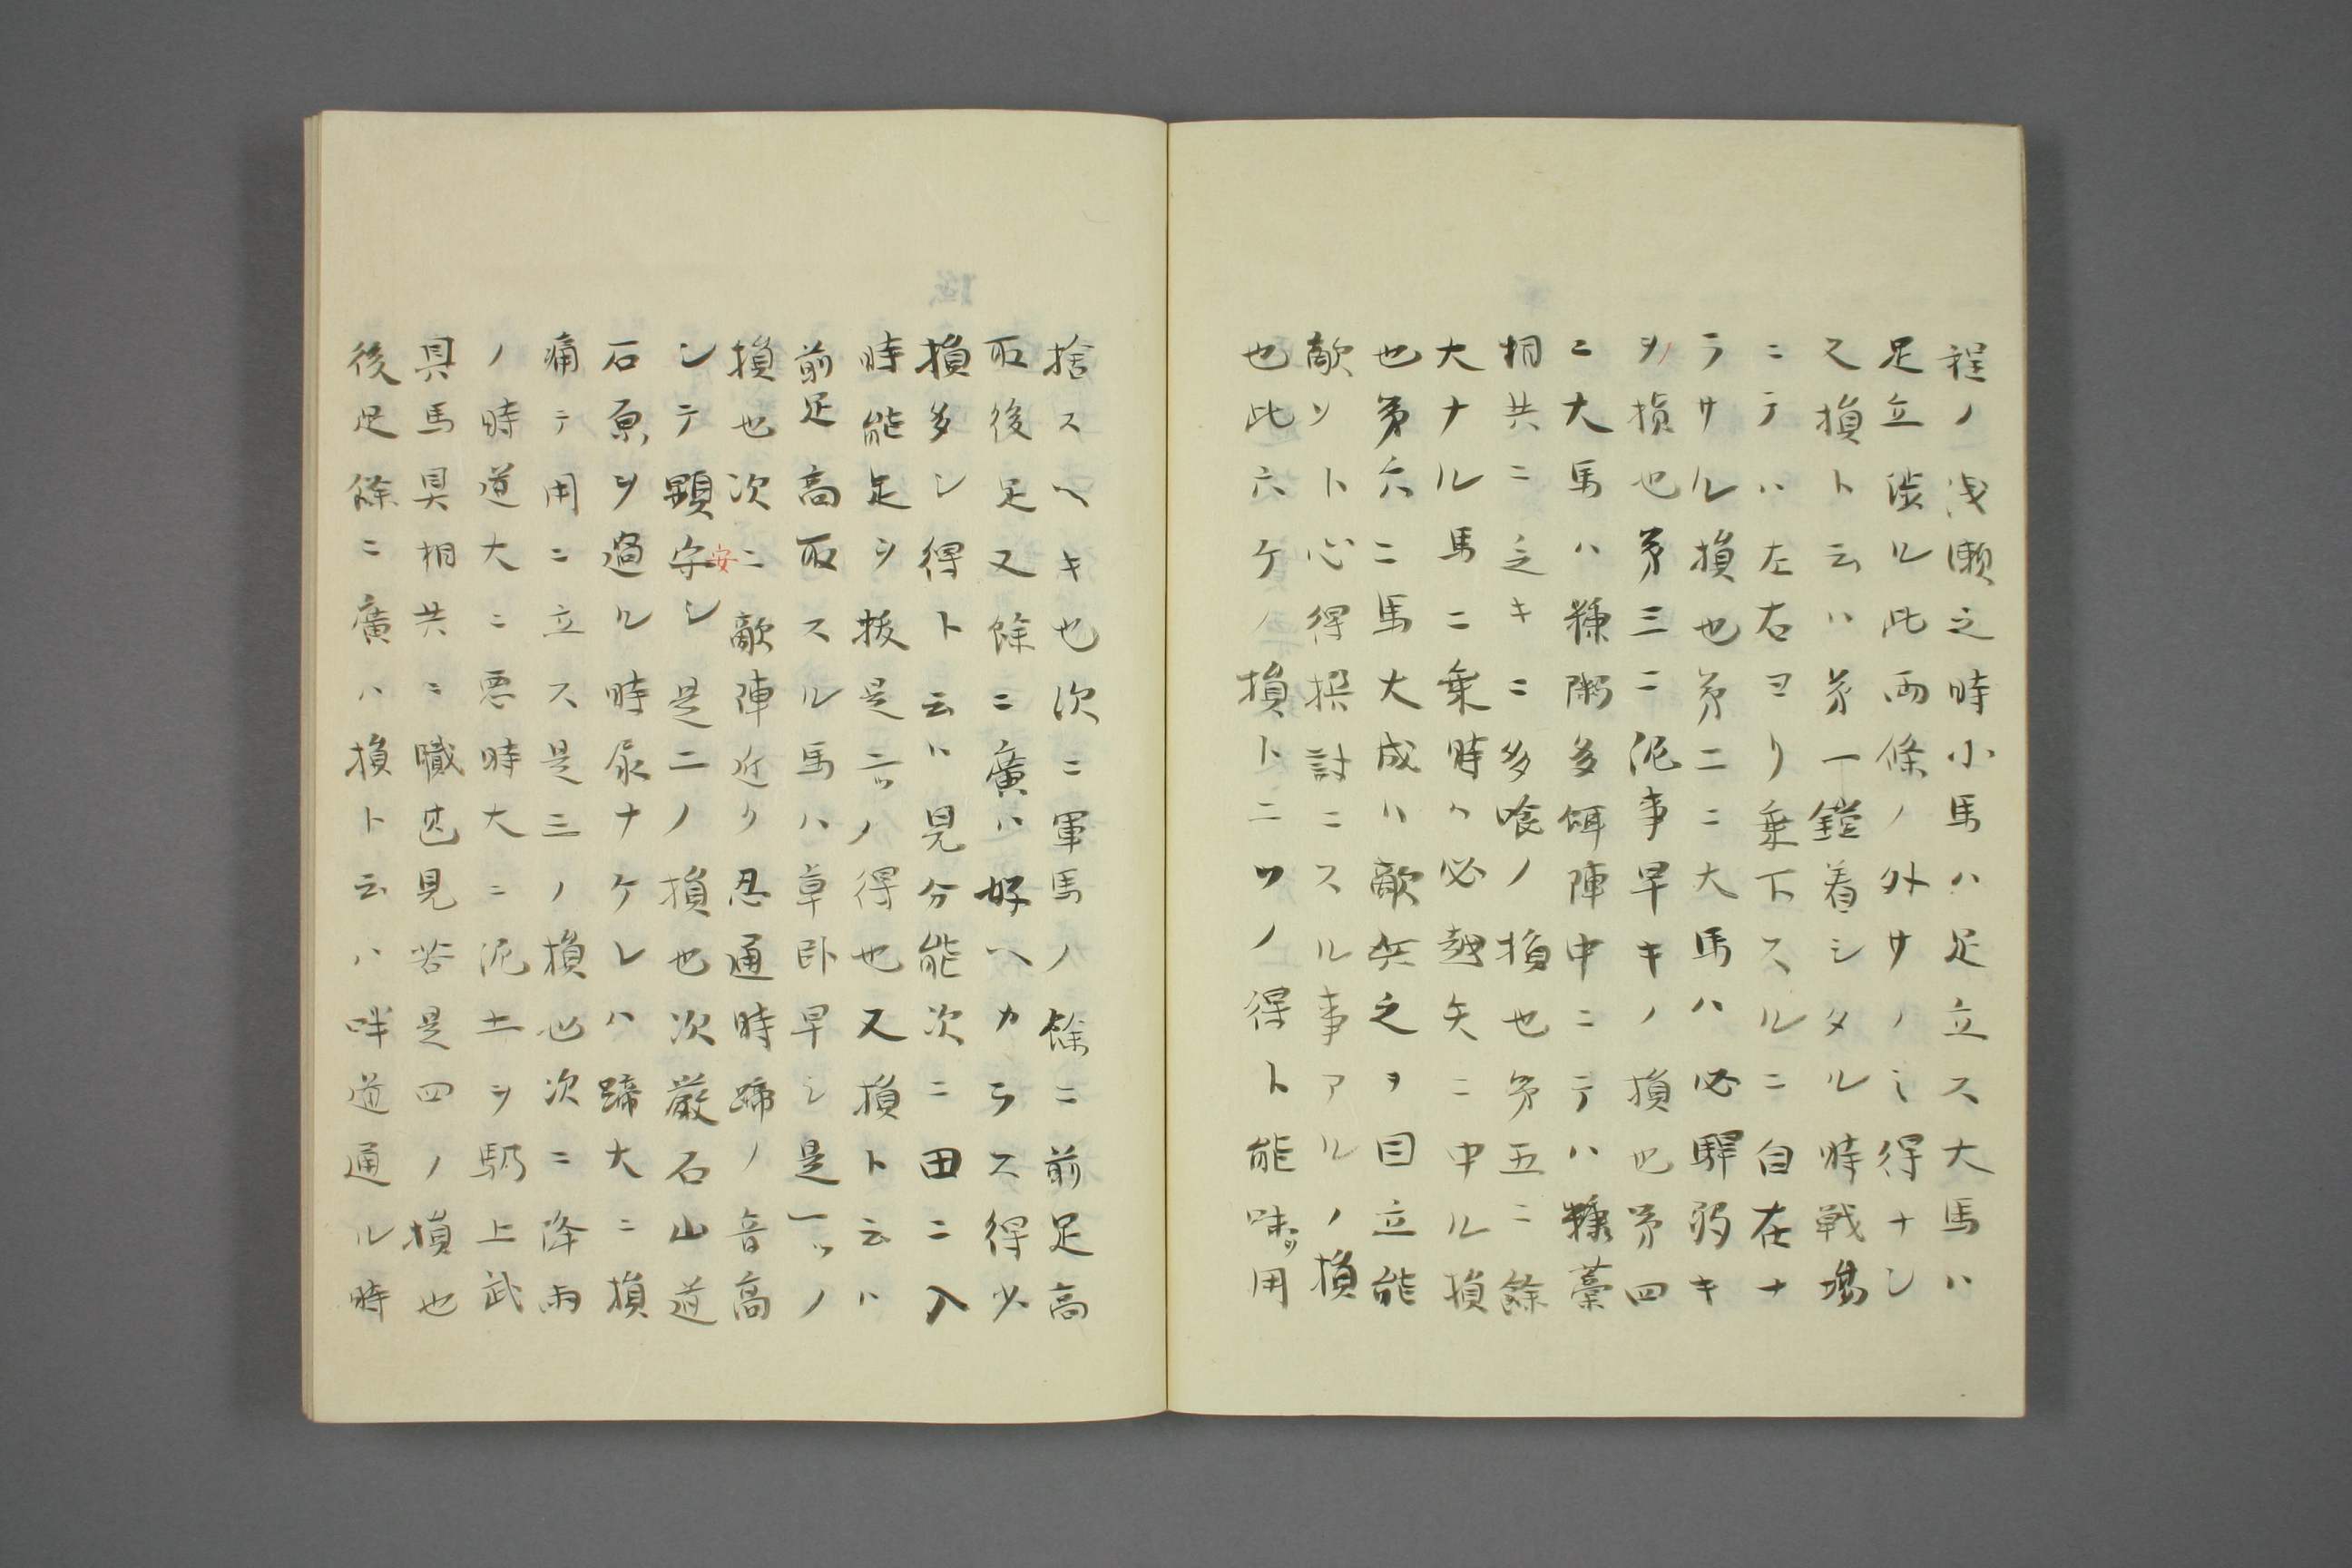 程ノ浅瀬之時小馬ハ足立ス大馬ハ
足立渡ル此両條ノ外サノミ得ナシ
又損ト云ハ第一鎧着シタル時戦場
ニテハ左右ヨリ乗下スルニ自在ナ
ラサル損也第二ニ大馬ハ必騨弱キ
ヲノ損也第三ニ泥事早キノ損也第四
ニ大馬ハ糠粥多餌陣中ニテハ糠藁
相共ニ乏キニ多喰ノ損也第五ニ餘
大ナル馬ニ乗時ハ必越矢ニ中ル損
也第六ニ馬大成ハ敵兵之ヲ目立能
敵ソト心得操討ニスル事アルノ損
也此六ケノ損ト二ツノ得ト能味ツ用
捨スヘキ也次ニ軍馬ノ餘ニ前足高
取後足又餘ニ廣ハ好ヘカラス得少
損多シ得ト云ハ見分能次ニ田ニ入
時能足ヲ抜是二ツノ得也又損ト云ハ
前足高取スル馬ハ草臥早シ是一ツノ
損也次ニ敵陣近ク忍通時蹄ノ音高
シテ顕守安シ是二ノ損也次厳石山道
石原ヲ過ル時尿ナケレハ蹄大ニ損
痛テ用ニ立ス是三ノ損也次ニ降雨
ノ時道大ニ悪時大ニ泥土ヲ騎上武
具馬具相共ニ職迠見苦是四ノ損也
後足餘ニ廣ハ損ト云ハ畔道通ル時